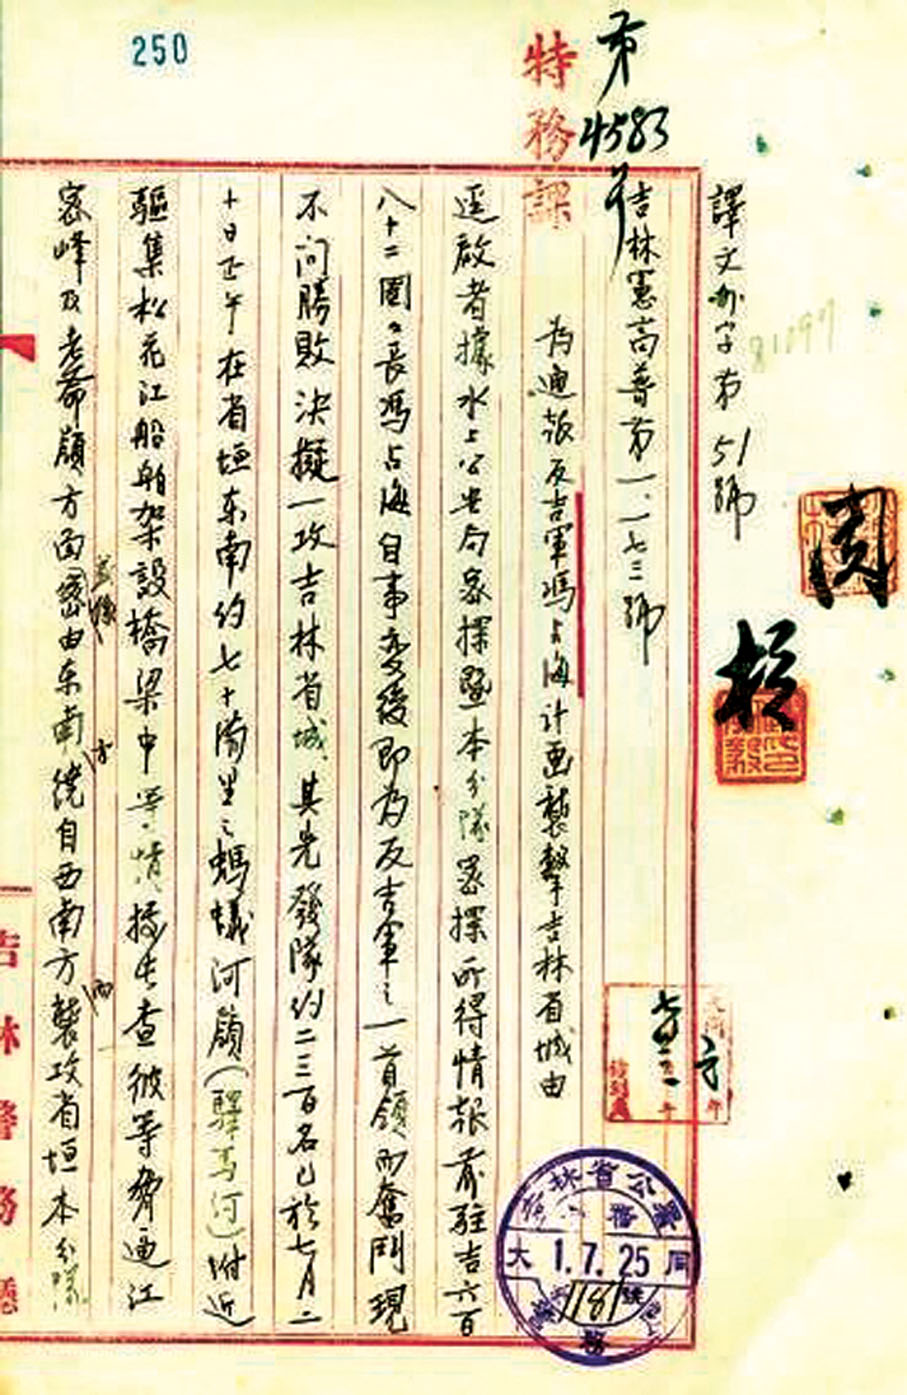 250
特務課
第4583号
譯文 字第51號
吉林憲高普第一、一七三號
為通報反吉軍馮占海計画襲擊吉林省城由
逕啟者據水上公安局密探暨本分隊密探所得情報前駐吉六百
八十二團々長馮占海自事变後即為反吉軍之一首領而奮鬥現
不问勝敗决擬一攻吉林省城其先發隊約二三百名已於七月二
十日正午在省垣东南約七十滿里之螞蟻河嶺(驛馬河)附近
驅集松花江船舶架設橋梁中等情據此查彼等脅逼江
密峰及老爺嶺方面密由东南繞自西南方襲攻省垣本分隊
方
而
吉林省公署
大同
1.7.25
181
號
吉林警務廳